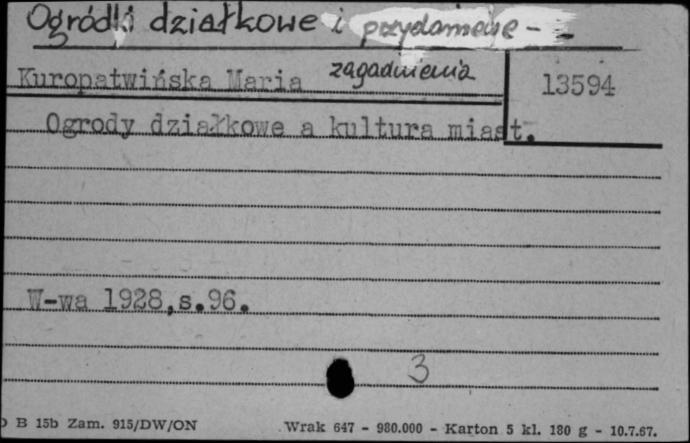 Ogródki działkowe i przydomowe -
zagadnienia
Kuropatwińska Maria
13594
Ogrody działkowe a kultura miast.
W-wa 1928,s.96.
3
B 15b Zam. 915/DW/ON
Wrak 647 - 980.000 - Karton 5 kl. 180 g - 10.7.67.